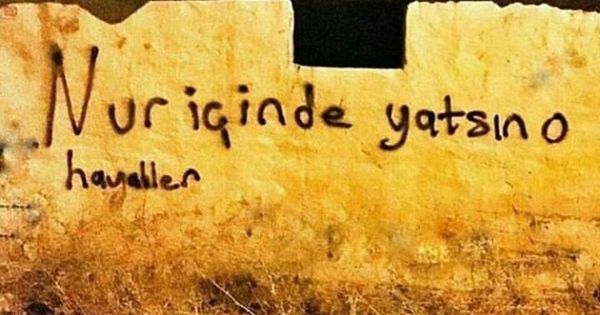 Nur içinde yatsın o
hayaller